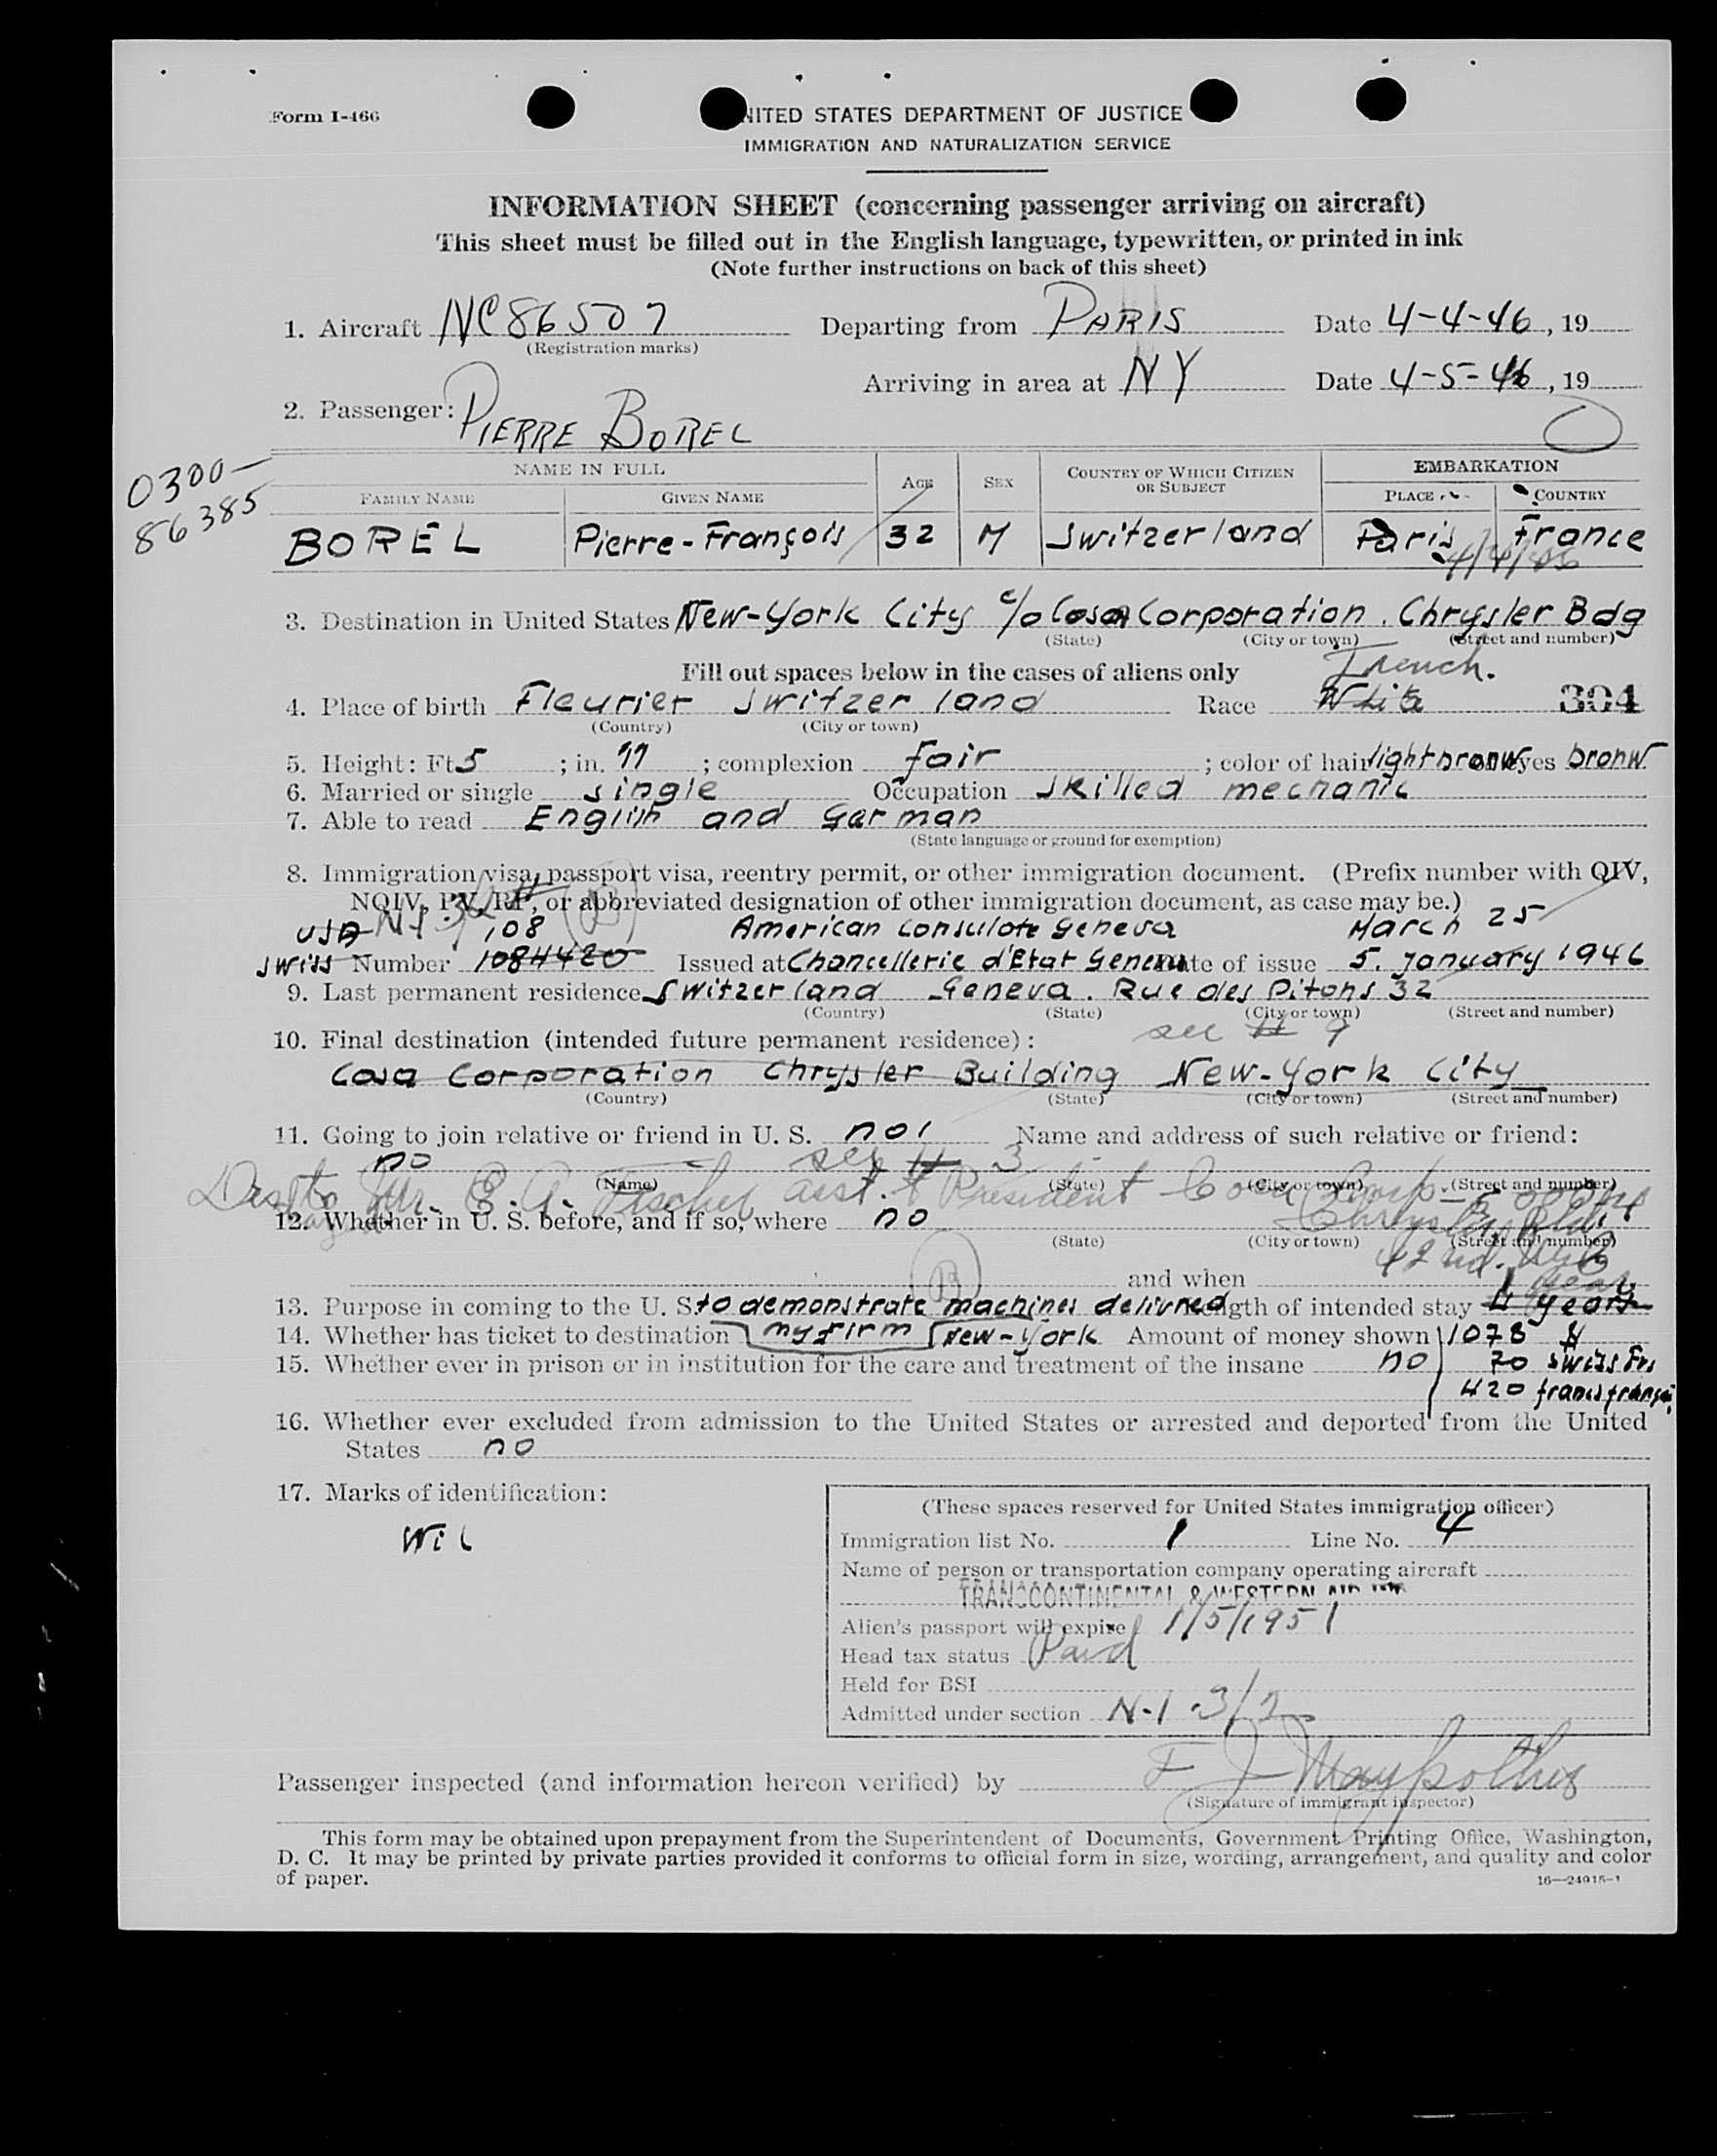 Form I-466
UNITED STATES DEPARTMENT OF JUSTICE
IMMIGRATION AND NATURALIZATION SERVICE
INFORMATION SHEET (concerning passenger arriving on aircraft)
This sheet must be filled out in the English language, typewritten, or printed in ink
(Note further instructions on back of this sheet)
1. Aircraft NC86507 Departing from PARIS Date 4-4-46, 19
(Registration marks)
Arriving in area at NY Date 4-5-46, 19
2. Passenger: PIERRE BOREL
0300-
86385
NAME IN FULL AGE SEX COUNTRY OF WHICH CITIZEN OR SUBJECT EMBARKATION
FAMILY NAME GIVEN NAME PLACE COUNTRY
BOREL Pierre-François 32 M Switzerland Paris France
4/4/46
3. Destination in United States New-York City c/o Cosa Corporation. Chrysler Bdg
(State) (City or town) (Street and number)
Fill out spaces below in the cases of aliens only
French.
4. Place of birth Fleurier Switzerland Race White 304
(Country) (City or town)
5. Height: Ft. 5 ; in. 11 ; complexion fair ; color of hair light bronw eyes bronw
6. Married or single single Occupation skilled mechanic
7. Able to read English and German
(State language or ground for exemption)
8. Immigration visa, passport visa, reentry permit, or other immigration document. (Prefix number with QIV,
NQIV, PV, RP, or abbreviated designation of other immigration document, as case may be.)
USA 108 American Consulate Geneva March 25
Swiss Number 1084420 Issued at Chancellerie d'Etat Geneva Date of issue 5. January 1946
9. Last permanent residence Switzerland Geneva. Rue des Pitons 32
(Country) (State) (City or town) (Street and number)
10. Final destination (intended future permanent residence): see # 9
Cosa Corporation Chrysler Building New-York City
(Country) (State) (City or town) (Street and number)
11. Going to join relative or friend in U. S. no! Name and address of such relative or friend:
no see # 3
(Name) (State) (City or town) (Street and number)
Mr. E. A. Fischer asst. to President Cosa Corp.
12. Whether in U. S. before, and if so, where no
Chrysler Bldg
(State) (City or town) (Street and number)
42nd
and when
1 year
13. Purpose in coming to the U. S. to demonstrate machines delivred Length of intended stay 4 years
14. Whether has ticket to destination my firm New-York Amount of money shown 1078 $
15. Whether ever in prison or in institution for the care and treatment of the insane no 70 swiss Frs
420 francs français
16. Whether ever excluded from admission to the United States or arrested and deported from the United
States no
17. Marks of identification:
(These spaces reserved for United States immigration officer)
Immigration list No. 1 Line No. 4
Name of person or transportation company operating aircraft
TRANSCONTINENTAL & WESTERN AIR INC
Alien's passport will expire 1/5/1951
Head tax status Paid
Held for BSI
Admitted under section N-1 3/2
Passenger inspected (and information hereon verified) by
(Signature of immigrant inspector)
This form may be obtained upon prepayment from the Superintendent of Documents, Government Printing Office, Washington,
D. C. It may be printed by private parties provided it conforms to official form in size, wording, arrangement, and quality and color
of paper.
16—24915-1